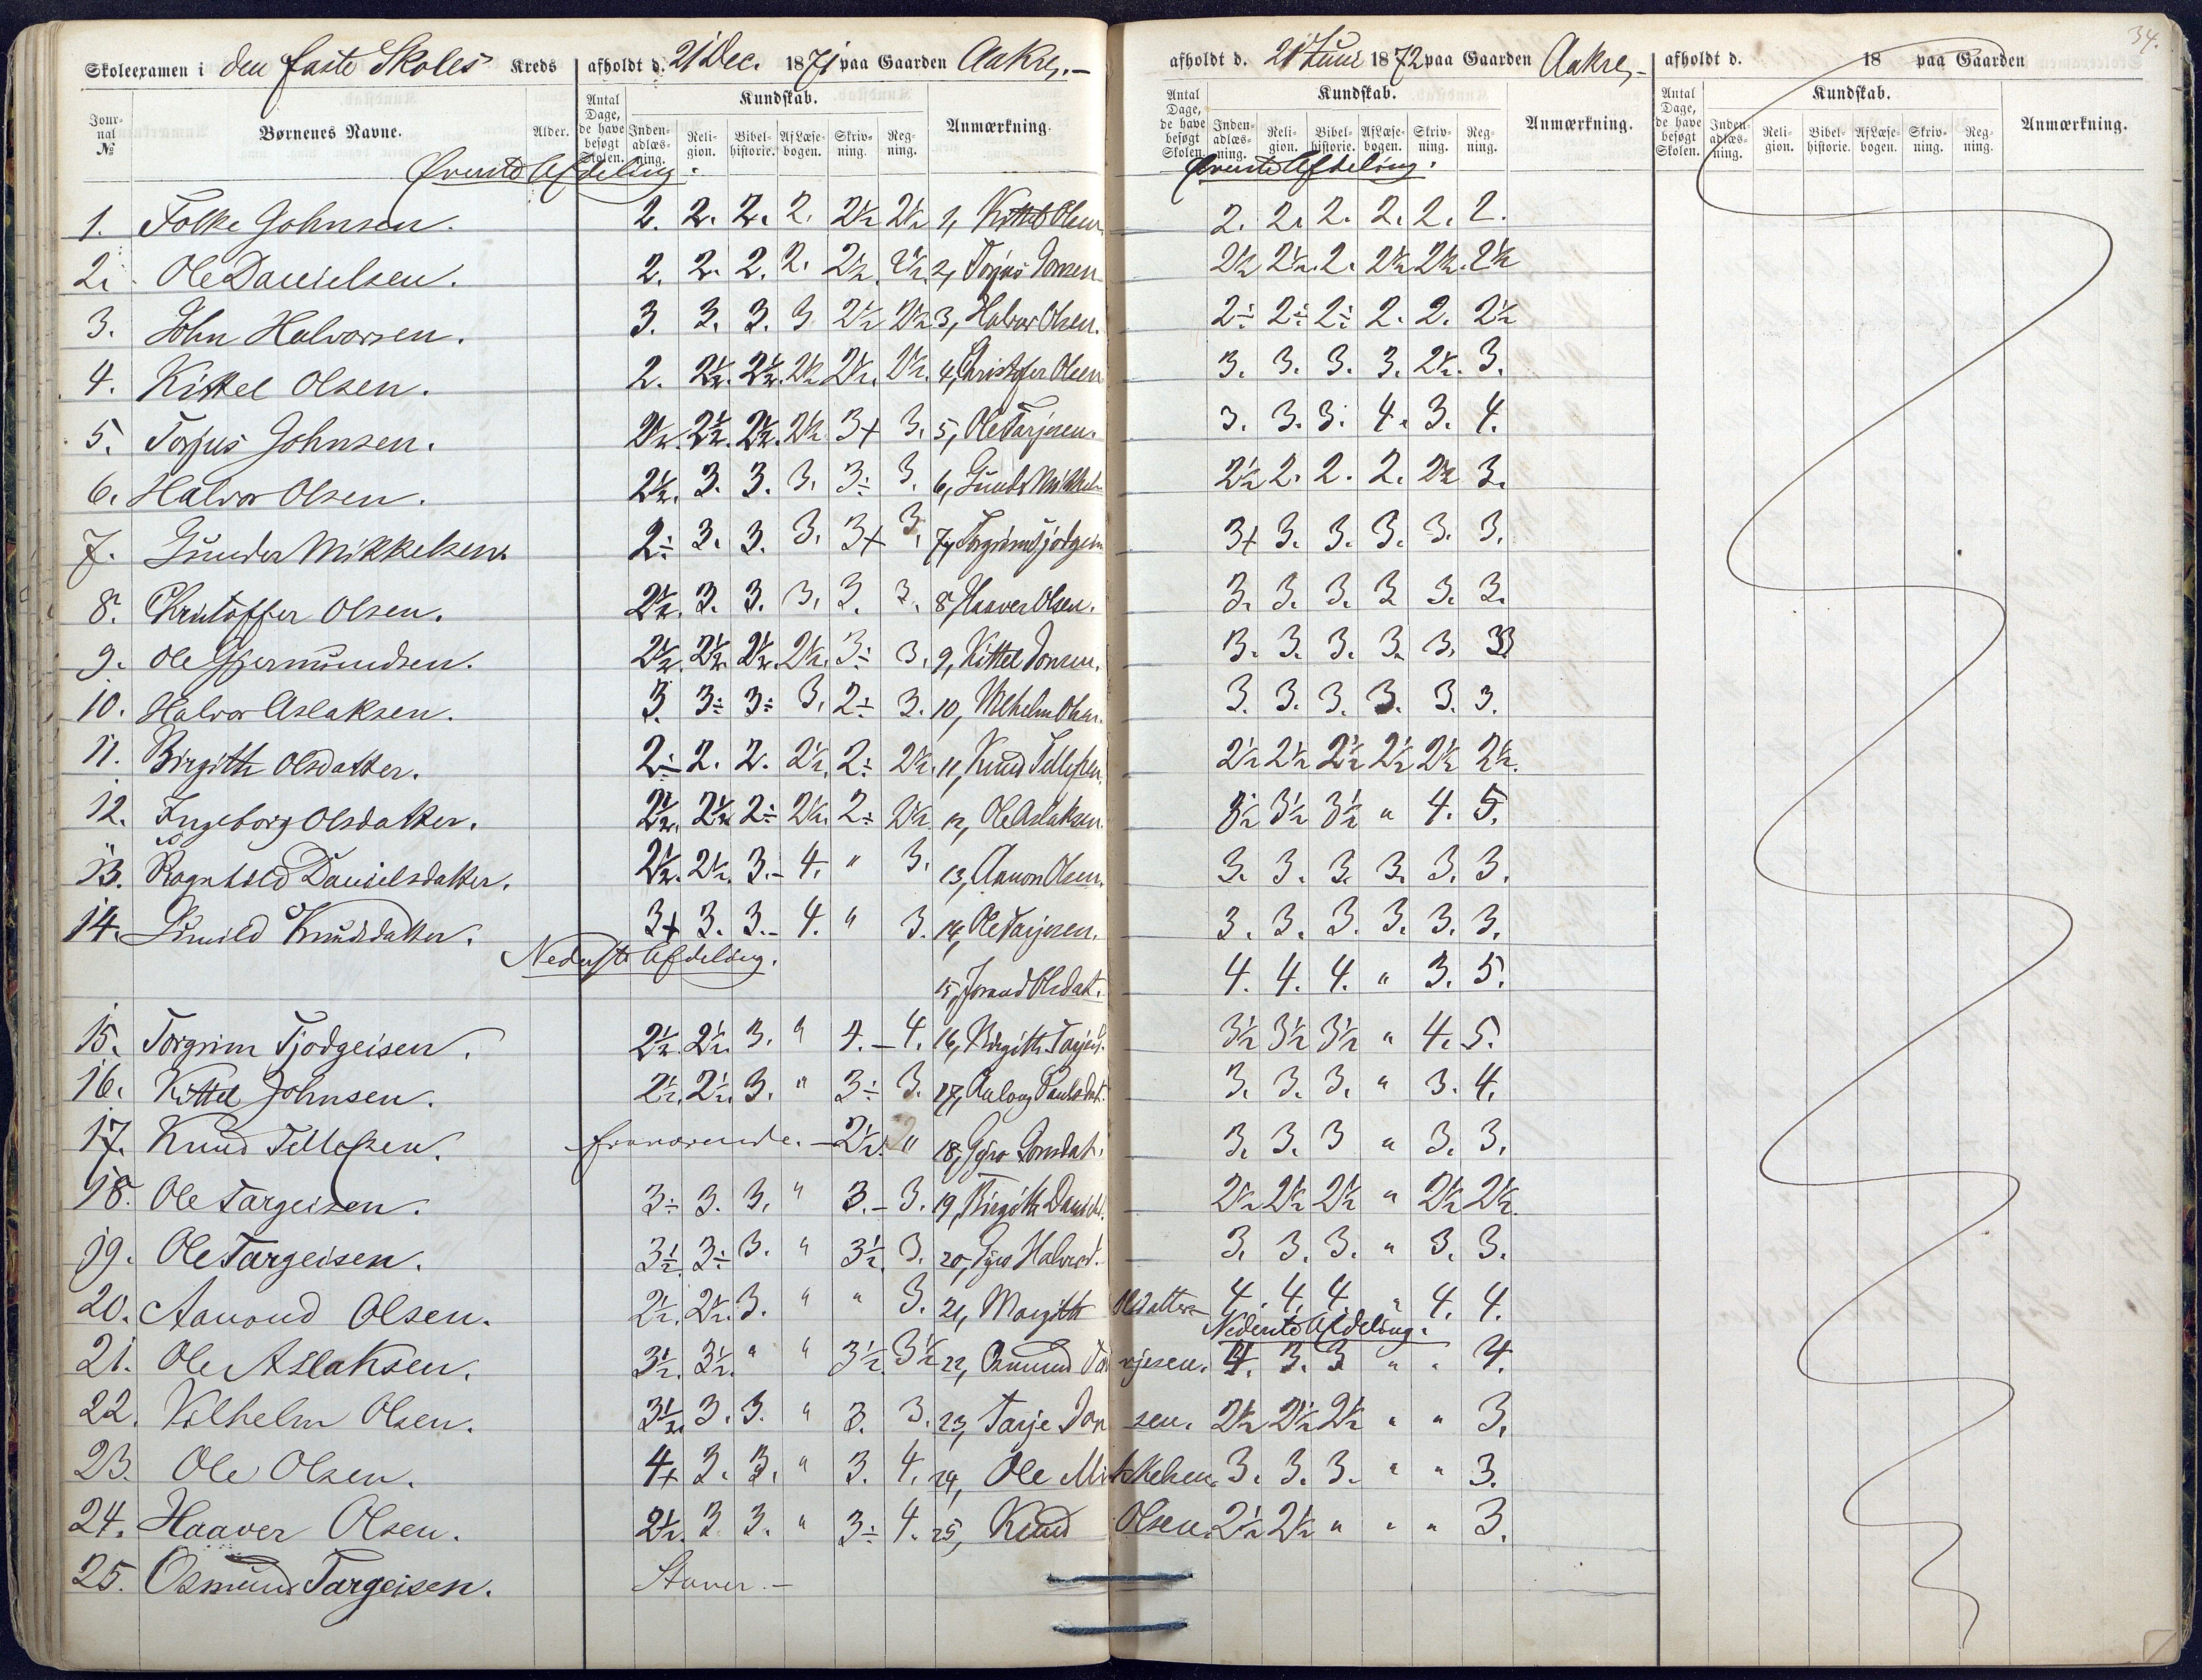 34.
Skoleexamen i den faste Skoles Kreds afholdt d. 21 Dec. 1871 paa Gaarden Aakre,- afholdt d. 21 Juni 1872 paa Gaarden Aakre,- afholdt d. 18 paa Gaarden
Journal № Børnenes Navne. Alder. Antal Dage, de have besøgt Skolen. Kundskab. Indenadlæsning. Religion. Bibelhistorie. Af Læsebogen. Skrivning. Regning. Anmærkning. Antal Dage, de have besøgt Skolen. Kundskab. Indenadlæsning. Religion. Bibelhistorie. Af Læsebogen. Skrivning. Regning. Anmærkning. Antal Dage, de have besøgt Skolen. Kundskab. Indenadlæsning. Religion. Bibelhistorie. Af Læsebogen. Skrivning. Regning. Anmærkning.
Øverste Afdeling. Øverste Afdeling.
1. Folke Johnsen. 2. 2. 2. 2. 2½ 2½ 1, Kittel Olsen 2. 2. 2. 2. 2. 2.
2. Ole Danielsen. 2. 2. 2. 2. 2½. 2½. 2, Torjus Jonsen 2½ 2½. 2. 2½ 2½. 2½
3. John Halvorsen. 3. 3. 3. 3 2½ 2½ 3, Halvor Olsen. 2÷ 2÷ 2÷ 2. 2. 2½
4. Kittel Olsen. 2. 2½. 2½. 2½ 2½. 2½. 4, Christofer Olsen 3. 3. 3. 3. 2½. 3.
5. Torjus Johnsen. 2½. 2½. 2½. 2½. 3+ 3. 5, Ole Tarjesen. 3. 3. 3. 4. 3. 4.
6. Halvor Olsen. 2½. 3. 3. 3. 3÷ 3. 6, Gund. Mikkels 2½ 2. 2. 2. 2½ 3.
7. Gunder Mikkelsen. 2÷ 3. 3. 3. 3+ 3. 7, Torgrim Tjodgeis 3+ 3. 3. 3. 3. 3.
8. Christoffer Olsen. 2½. 3. 3. 3. 3. 3. 8, Haaver Olsen. 3. 3. 3. 3 3. 3.
9. Ole Gjermundsen. 2½. 2½. 2½. 2½. 3÷ 3. 9, Kittel Jonsen. 3. 3. 3. 3. 3. 3
10. Halvor Aslaksen. 3. 3÷ 3÷ 3. 2÷ 3. 10, Vilhelm Olsen. 3. 3. 3. 3. 3. 3.
11. Birgith Olsdatter. 2÷ 2. 2. 2½. 2÷ 2½. 11, Knud Tellefsen. 2½ 2½ 2½ 2½ 2½ 2½.
12. Ingeborg Olsdatter. 2½. 2½ 2÷ 2½. 2÷ 2½. 12, Ole Aslaksen. 3½ 3½ 3½ " 4. 5.
13. Ragnhild Danielsdatter. 2½. 2½. 3.- 4. " 3. 13, Aanon Olsen. 3. 3. 3. 3. 3. 3.
14. Knudsdatter. 3+ 3. 3.- 4. " 3. 14, Ole Tarjesen. 3. 3. 3. 3. 3. 3.
Nederste Afdeling. 15, Jorand Olsdat. 4. 4. 4. " 3. 5.
15. Torgrim Tjodgeisen. 2½. 2½. 3. " 4.- 4. 16, Birgith Tarjeis. 3½ 3½ 3½ " 4. 5.
16. Kittel Johnsen. 2½. 2½. 3. " 3÷ 3. 17, Asloug Paulsdat. 3. 3. 3. " 3. 4.
17. Knud Tellefsen. fraværende. - 2½. " 18, Gyro Jonsdat. 3. 3. 3 " 3. 3.
18. Ole Targeisen. 3÷ 3. 3. " 3.- 3. 19, Birgith Danield. 2½ 2½ 2½ " 2½ 2½.
19. Ole Targeisen. 3½. 3÷ 3. " 3½. 3. 20, Gyro Halvord. 3. 3. 3. " 3. 3.
20. Aanond Olsen. 2½. 2½. 3. " " 3. 21, Margith Olsdatter 4. 4. 4. " 4. 4.
Nederste Afdeling.
21. Ole Aslaksen. 3½. 3½. " " 3½. 3½ 22, Osmund Tarjesen. 4. 3. 3 " " 4.
22. Vilhelm Olsen. 3½. 3. 3. " 3. 3. 23, Tarje Jonsen. 2½ 2½ 2½ " " 3.
23. Ole Olsen. 4+ 3. 3. " 3. 4. 24, Ole Mikkelsen. 3. 3. 3. " " 3.
24. Haaver Olsen. 2½. 3 3. " 3÷ 4. 25, Knud Olsen. 2½ 2½ " " " 3.
25. Osmund Targeisen. Staver.-